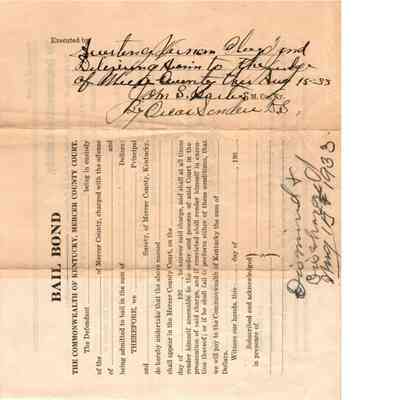 Executed by
Arresting Vernon Claycomb and
Delivering Him to the Judge
of Mercer County this Aug 15-33
John S.
S. M. Co. Ky.
By Oscar Sanders D.S.
BAIL BOND
THE COMMONWEALTH OF KENTUCKY, MERCER COUNTY COURT.
The Defendant being in custody
of the of Mercer County, charged with the offense
of and
being admitted to bail in the sum of Dollars:
THEREFORE, we Principal
and Surety, of Mercer County, Kentucky,
do hereby undertake that the above named
shall appear in the Mercer County Court, on the
day of 192 to answer said charge, and shall at all times
render himself amenable to the order and process of said Court in the
prosecution of said charge, and if convicted shall render himself in execu-
tion thereof; or if he shall fail to perform either of these conditions, that
we will pay to the Commonwealth of Kentucky the sum of
Dollars.
Witness our hands, this day of 192
Subscribed and acknowledged
in presence of
Dismissed &
Discharged
Aug 18th 1933